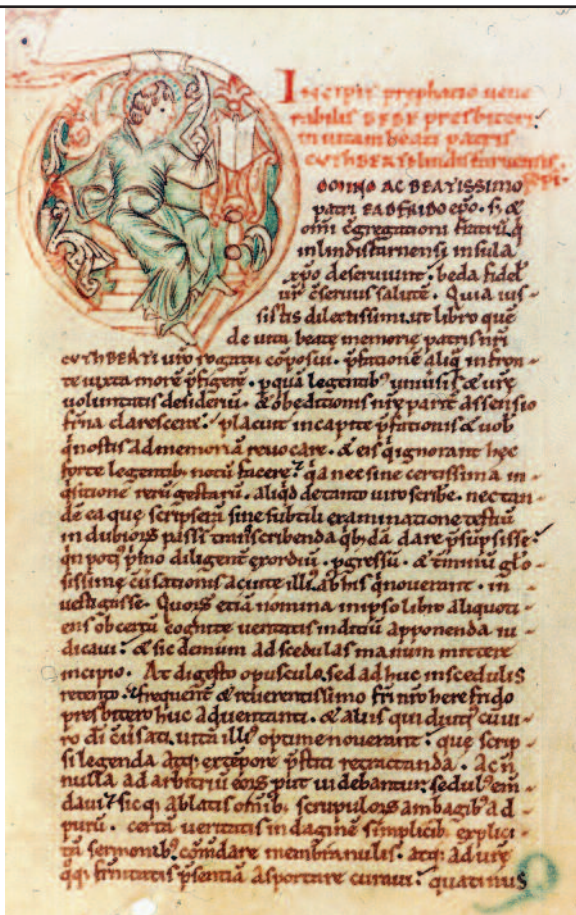 Incipit prephatio vene
rabilis BEDE presbiteri
in vitam beati patris
CVTHBERTI lindisfarnensis
epi.
DONNO AC BEATISSIMO
patri EADFRIDO epo. s; &
omi cgregationi fratrũ q̃
in lindisfarnensi insula
xpo deserviunt. beda fidel'
vr̃ cservus salutẽ. Quia ius-
sistis dilectissimi. ut libro quẽ
de vita beatẽ memoriẽ patris nr̃i
CVTHBERTI vr̃o rogatu cõposui. p̃fationẽ aliq̃ in fron-
te iuxta morẽ p̃figerẽ. p quã legentib' univsis & vrẽ
voluntatis desideriũ. & obeditionis nr̃e parit̃ assensio
frĩna claresceret: placuit in capite p̃fationis & vob'
q̃ nostis ad memoriã revocare. & eis q̃ ignorant hẹc
forte legentib; notũ facere: q̃a nec sine certissima in-
q̃sitione rerũ gestarũ. aliq̃d de tanto viro scribe. nec tan-
dẽ ea que scripserã sine subtili examinatione testiũ
in dubiorꝫ passĩ transcribenda q̃b;dã dare p̃sũpsisse:
q̃n potĩ p̃mo diligent̃ exordiũ. p̃gressũ. & t̃minũ glo-
sissimẹ cũsationis ac vite illi'. ab his q̃ noverant. in-
vestigasse. Quorꝫ etiã nomina in ipso libro aliquoti-
ens ob certũ cognitẹ veritatis inditiũ apponenda iu-
dicavi: & sic demum ad scedulas manum mittere
incipio. At digesto opusculo. sed adhuc in scedulis
retento. frequent̃ & reverentissimo fr̃i nr̃o herefrido
presbitero huc adventanti. & aliis qui diuti' cũ vi-
ro di cũsati. vitã illi' optime noverant: que scrip-
si legenda atq; extẽpore p̃stiti retractanda. Ac ñ
nulla ad arbitriũ eorꝫ put videbantur; sedul' em-
davi: sicq; ablatis omib; scrupulorꝫ ambagib' ad
purũ. certã veritatis indaginẽ simplicib; explici-
tã sermonib'. cõmdare membranulis. atq; ad vrẹ
q̃q; frñitatis p̃sentiã asportare curavi: quatinus